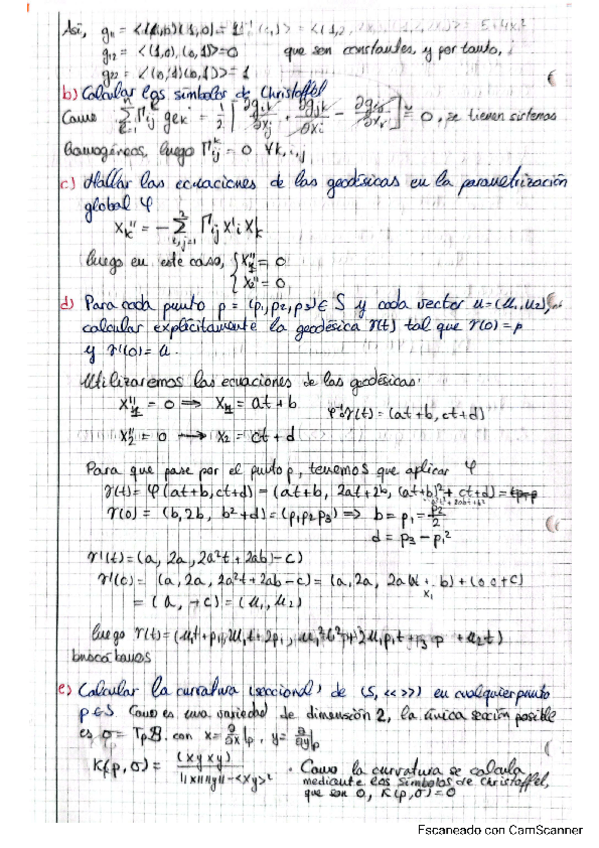 Así, g₁₁ = <(1,0)(1,0)> = 1
g₁₂ = <(1,0), (0,1)> = 0 que son constantes, y por tanto,
g₂₂ = <(0,1)(0,1)> = 1
b) Calcular los símbolos de Christoffel
Como Σ Γᵢⱼ gₑₖ = 1/2 [∂gᵢₖ/∂xⱼ + ∂gⱼₖ/∂xᵢ − ∂gᵢⱼ/∂xₖ] = 0, se tienen sistemas
homogéneos, luego Γᵢⱼᵏ = 0 ∀k,i,j
c) Hallar las ecuaciones de las geodésicas en la parametrización
global φ
xₖ'' = − Σ Γᵢⱼ x'ᵢ x'ₖ
luego en este caso, { x₁'' = 0
x₂'' = 0
d) Para cada punto p = (p₁,p₂,p₃) ∈ S y cada vector u = (u₁,u₂),
calcular explícitamente la geodésica γ(t) tal que γ(0) = p
y γ'(0) = u.
Utilizaremos las ecuaciones de las geodésicas:
x₁'' = 0 → x₁ = at + b
φ⁻¹∘γ(t) = (at+b, ct+d)
x₂'' = 0 → x₂ = ct + d
Para que pase por el punto p, tenemos que aplicar φ
γ(t) = φ(at+b, ct+d) = (at+b, 2at+2b, (at+b)² + ct+d)
γ(0) = (b, 2b, b²+d) = (p₁p₂p₃) ⇒ b = p₁ = p₂/2
d = p₃ − p₁²
γ'(t) = (a, 2a, 2a²t + 2ab) − c)
γ'(0) = (a, 2a, 2a²t + 2ab − c) = (a, 2a,
= (a, −c) = (u₁, u₂)
luego γ(t) = (u₁t + p₁,
buscábamos
e) Calcular la curvatura (seccional) de (S, << >>) en cualquier punto
p ∈ S Como es una variedad de dimensión 2, la única sección posible
es σ = TₚS con x = ∂/∂x|ₚ, y = ∂/∂y|ₚ
K(p, σ) = (xyxy) / ||x||||y|| − <xy>² . Como la curvatura se calcula
mediante los símbolos de Christoffel,
que son 0, K(p, σ) = 0
Escaneado con CamScanner